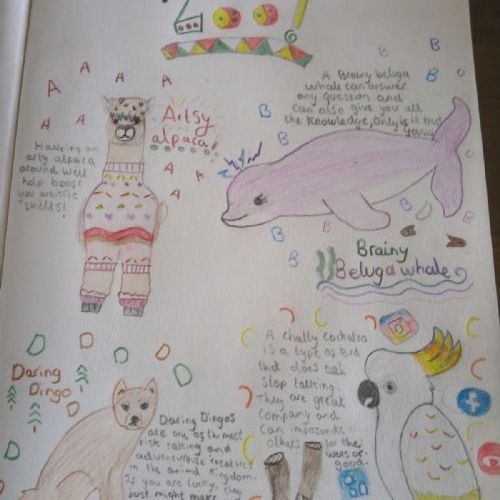 Zoo!
A A A A A A A A
Artsy
alpaca!
Having an
arty alpaca
around will
help boost
you artistic
skills!
B B B B B B B B
A Brainy beluga
whale can answer
any question and
can also give you all
the knowledge, only is it
Brainy
Beluga whale
D D D D D D
Daring
Dingo
Daring Dingos
are one of the most
risk taking and
adventurous creatures
in the animal kingdom.
If you are lucky, they
Just might make
A chatty cockatoo
is a type of Bird
that does not
stop talking.
They are great
Company and
Can
others for the
good.